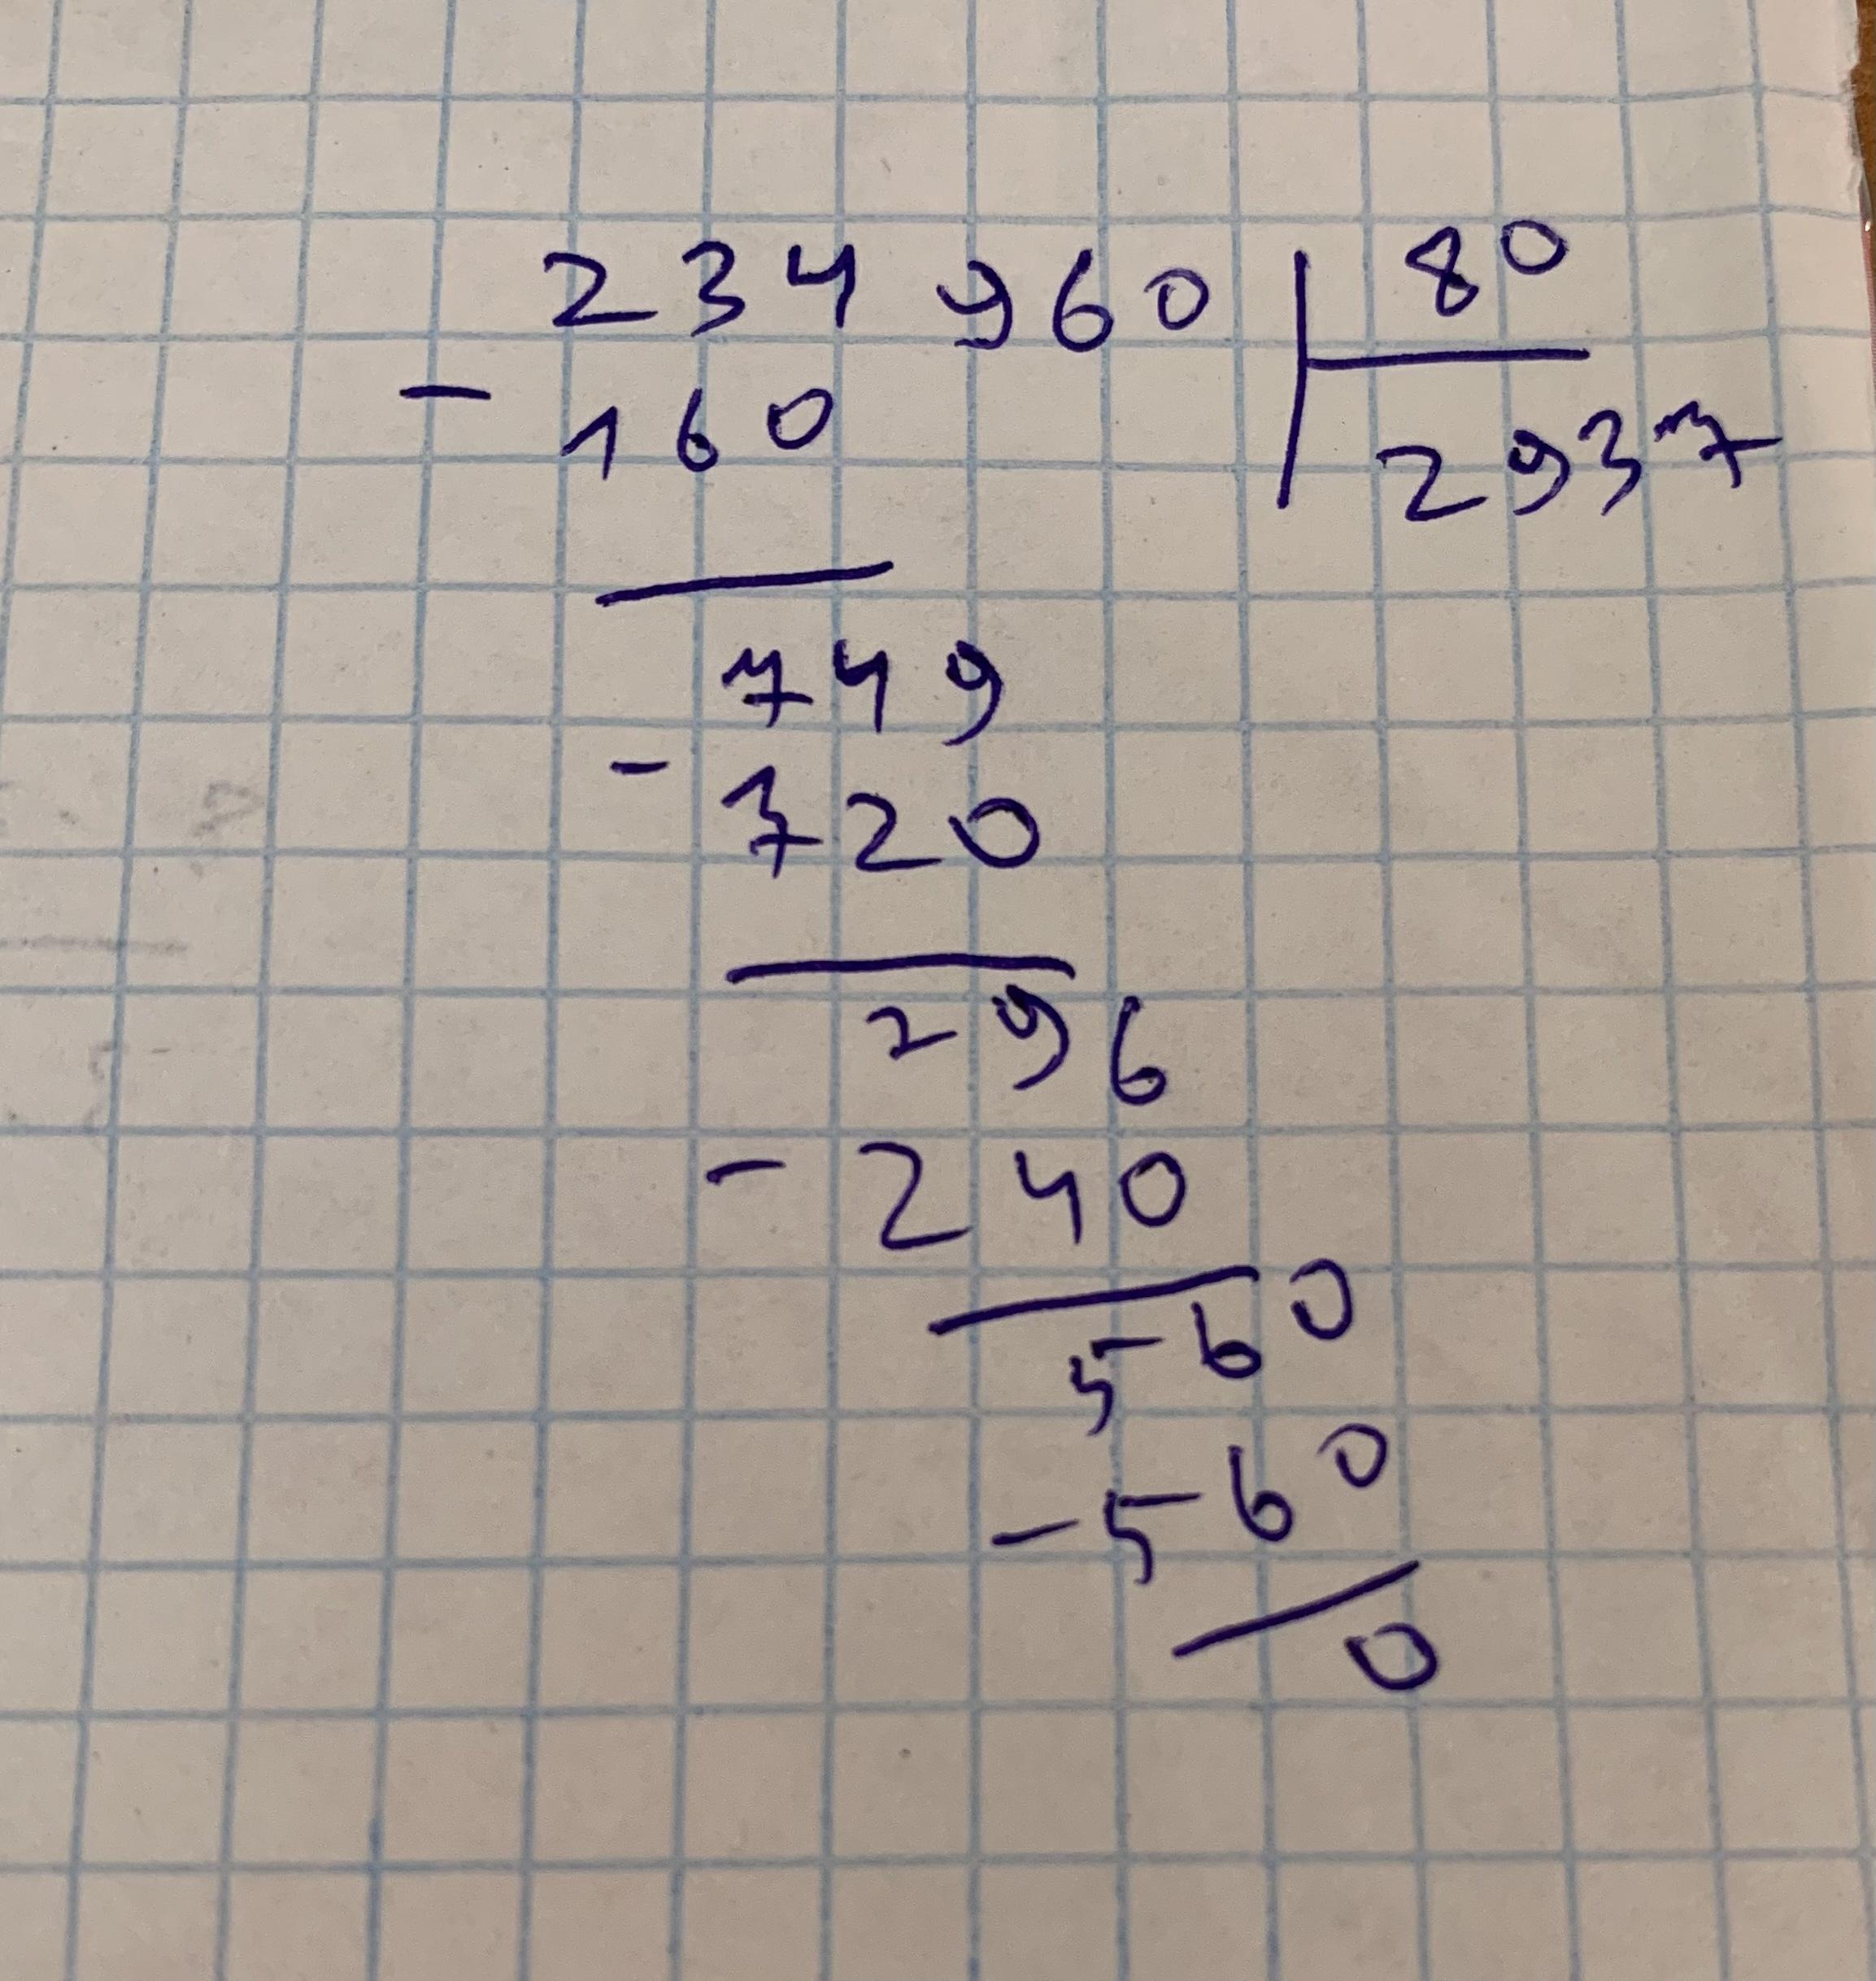 234 960 | 80
- 160 | 2937
749
- 720
296
- 240
560
- 560
0